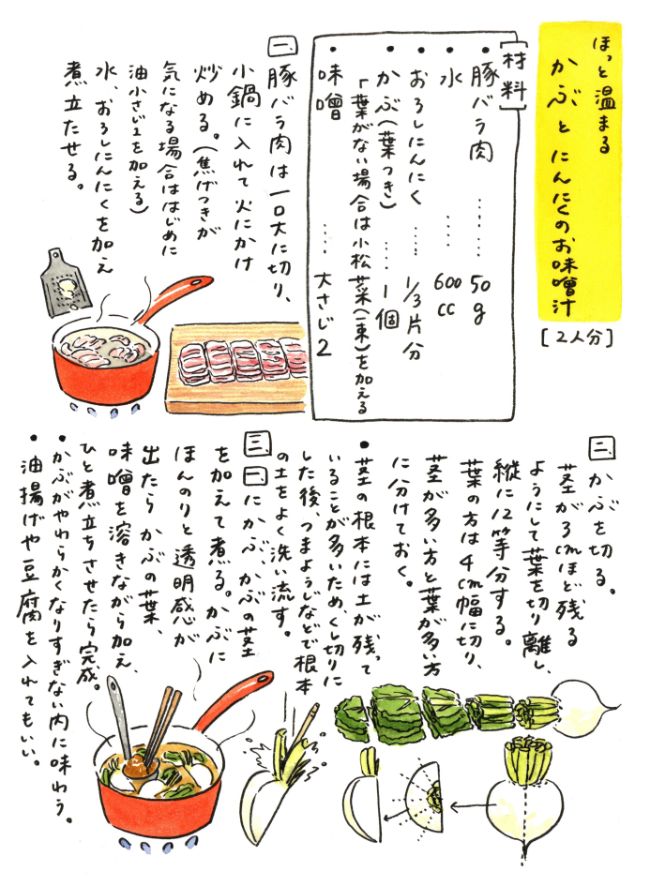 ほっと温まる
かぶとにんにくのお味噌汁
[2人分]
[材料]
・豚バラ肉 ……… 50g
・水 …… 600cc
・おろしにんにく …… 1/3片分
・かぶ(葉つき) …… 1個
「葉がない場合は小松菜(一束)を加える
・味噌 …… 大さじ2
一 豚バラ肉は一口大に切り、
小鍋に入れて火にかけ
炒める。(焦げつきが
気になる場合ははじめに
油小さじ1を加える)
水、おろしにんにくを加え
煮立たせる。
二 かぶを切る。
茎が3cmほど残る
ようにして葉を切り離し、
縦に12等分する。
葉の方は4cm幅に切り、
茎が多い方と葉が多い方
に分けておく。
・茎の根本には土が残って
いることが多いため、くし切りに
した後、つまようじなどで根本
の土をよく洗い流す。
三 一にかぶ、かぶの茎
を加えて煮る。かぶに
ほんのりと透明感が
出たらかぶの葉、
味噌を溶きながら加え、
ひと煮立ちさせたら完成。
・かぶがやわらかくなりすぎない内に味わう。
・油揚げや豆腐を入れてもいい。